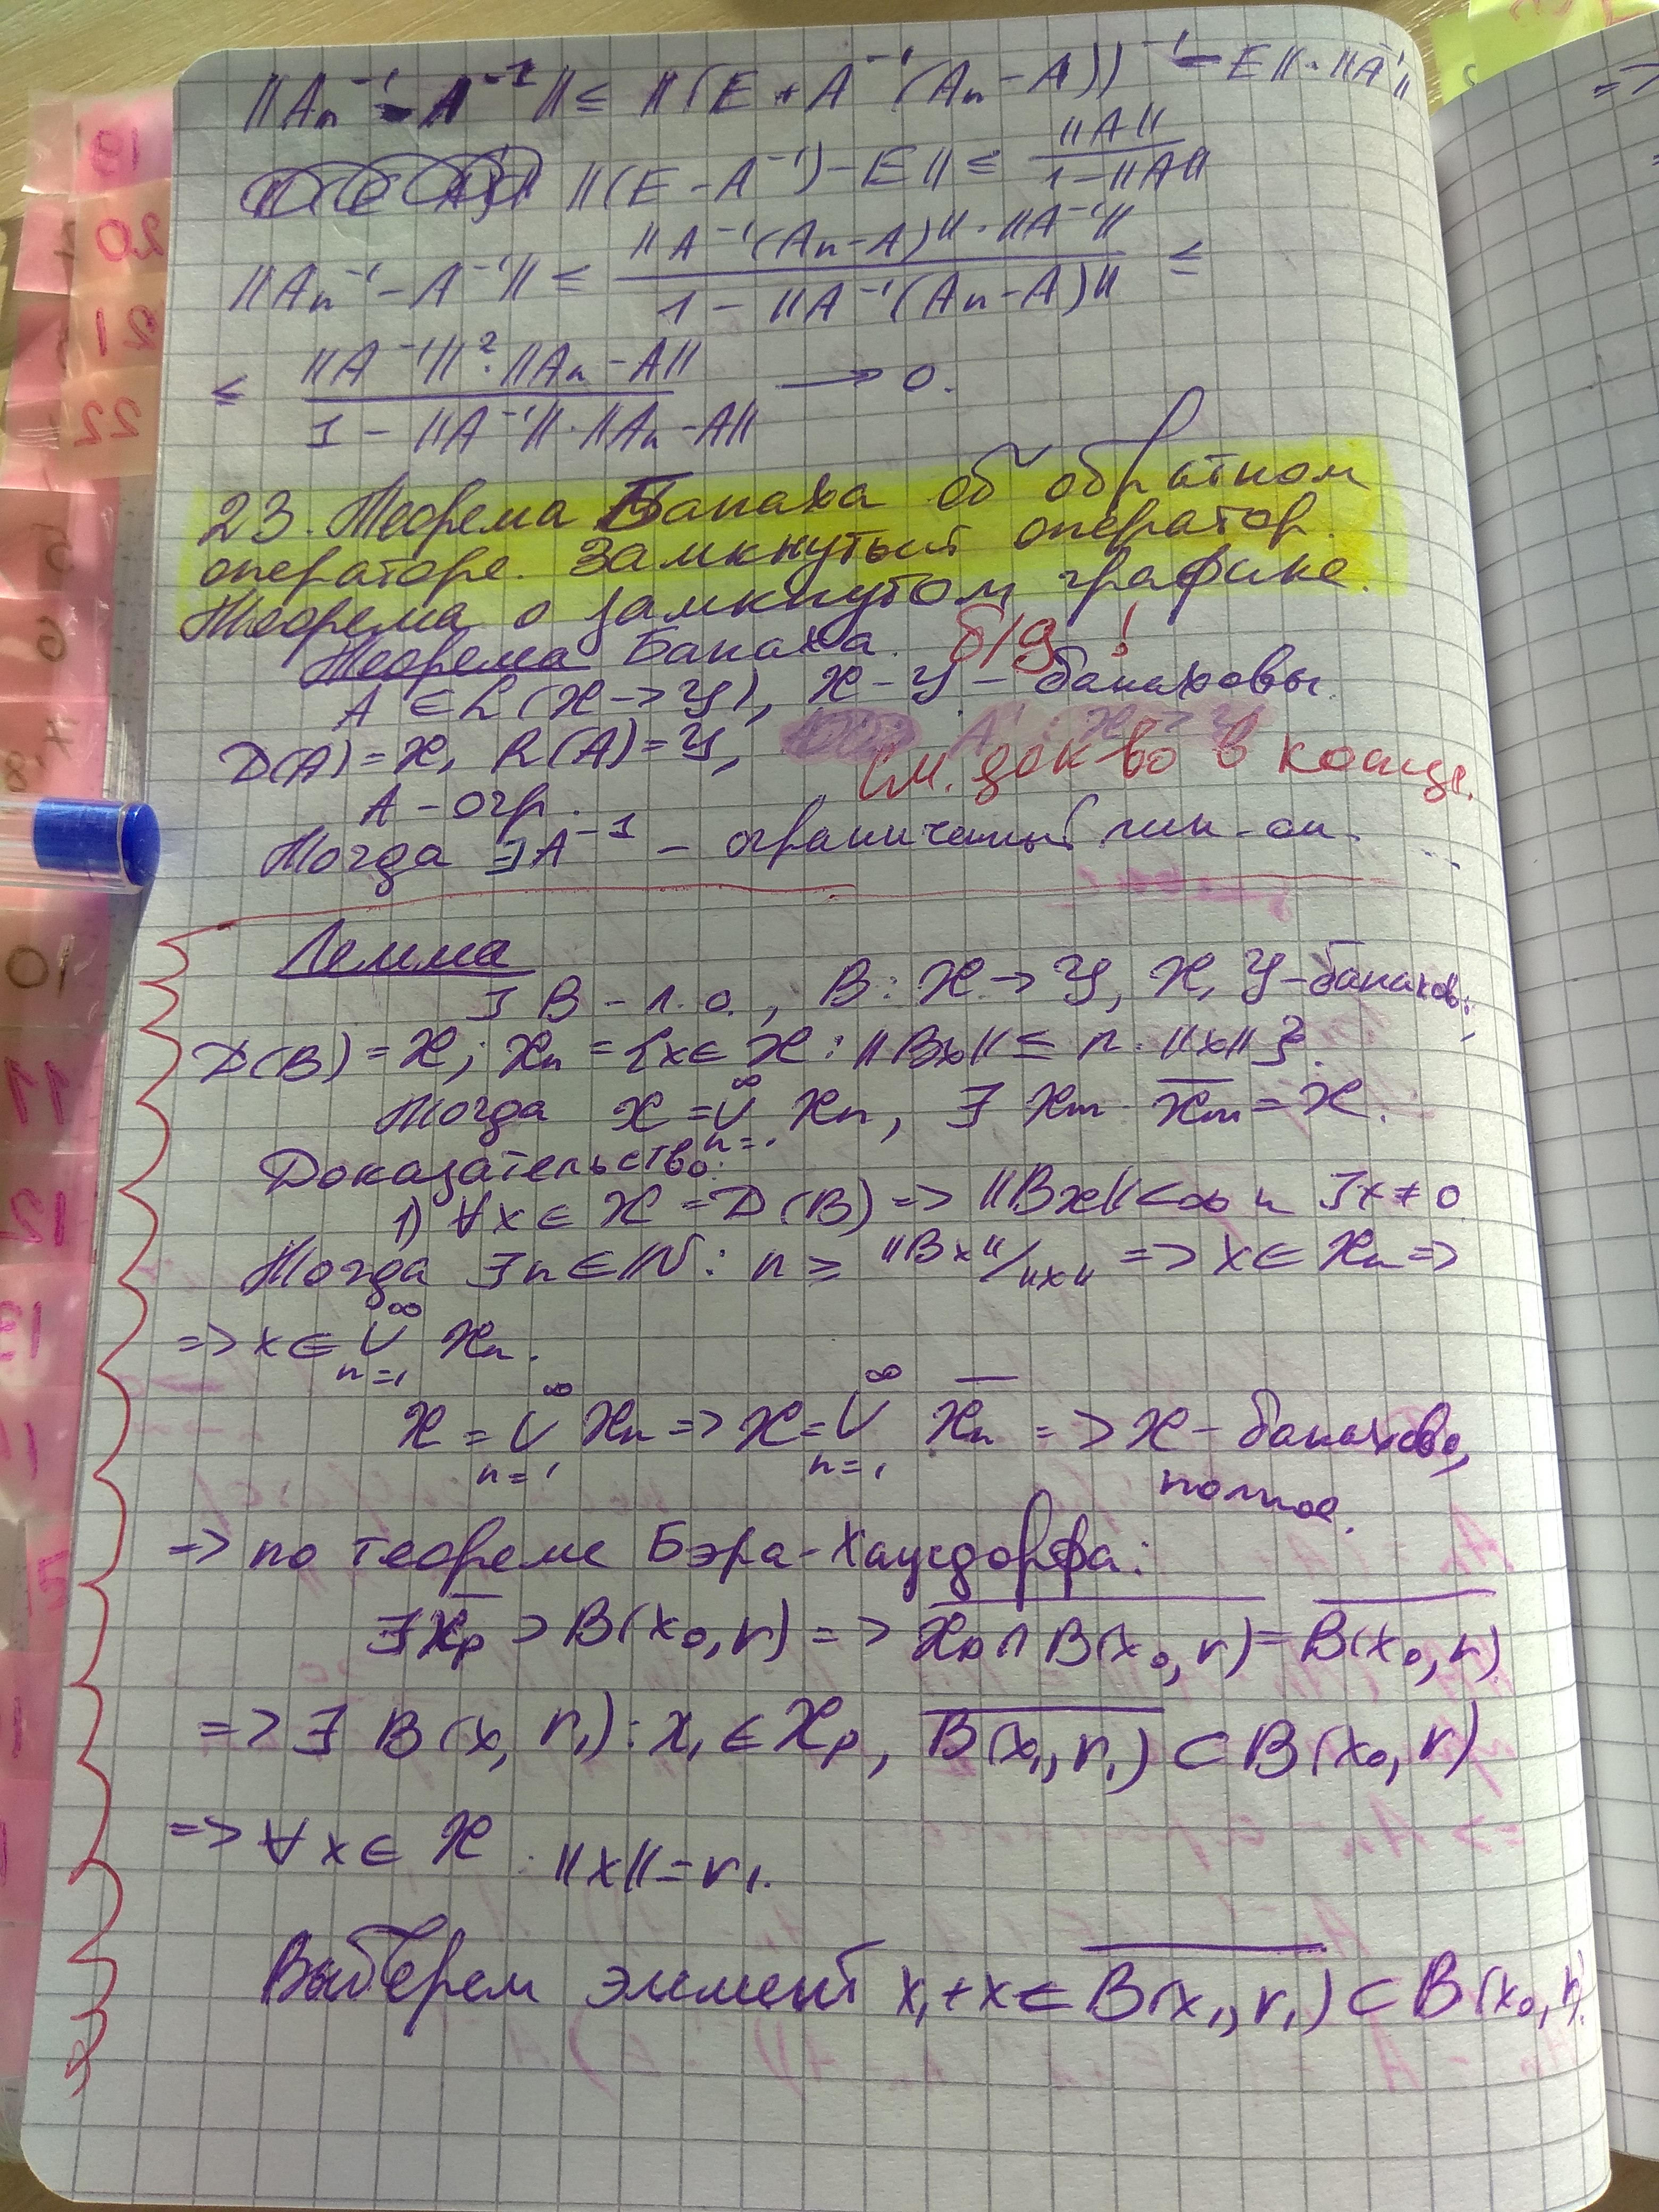 ||Aₙ⁻¹ - A⁻¹|| ≤ ||(E + A⁻¹(Aₙ - A))⁻¹ - E||·||A⁻¹||
||(E - A⁻¹) - E|| ≤ ||A|| / 1 - ||A||
||Aₙ⁻¹ - A⁻¹|| ≤ ||A⁻¹(Aₙ - A)||·||A⁻¹|| / 1 - ||A⁻¹(Aₙ - A)|| ≤
≤ ||A⁻¹||²·||Aₙ - A|| / 1 - ||A⁻¹||·||Aₙ - A|| → 0.
23. Теорема Банаха об обратном
операторе. Замкнутый оператор.
Теорема о замкнутом графике.
Теорема Банаха. б/д !
A ∈ L(X → Y), X - Y - банаховы.
D(A) = X, R(A) = Y,
См. док-во в конце.
A - огр.
Тогда ∃ A⁻¹ - ограниченный лин. оп.
Лемма
∃ B - л.о., B: X → Y, X, Y - банахов.;
D(B) = X; Xₙ = {x ∈ X : ||Bx|| ≤ n·||x||}.
Тогда X = ∪ₙ₌₁^∞ Xₙ, ∃ Xₘ X̅ₘ̅ = X.
Доказательство:
1) ∀x ∈ X = D(B) => ||Bx|| < ∞ и ∃ x ≠ 0
Тогда ∃ n ∈ ℕ : n ≥ ||Bx||/||x|| => x ∈ Xₙ =>
=> x ∈ ∪ₙ₌₁^∞ Xₙ.
X = ∪ₙ₌₁^∞ Xₙ => X = ∪ₙ₌₁^∞ X̅ₙ̅ => X - банахово,
полное.
=> по теореме Бэра-Хаусдорфа:
∃ X̅ₚ ⊃ B(x₀, r) => X̅ₚ̅ ̅∩̅ ̅B̅(̅x̅₀̅,̅ ̅r̅)̅ = B̅(̅x̅₀̅,̅ ̅r̅)̅
=> ∃ B(x₁, r₁) : x₁ ∈ Xₚ, B̅(̅x̅₁̅,̅ ̅r̅₁̅)̅ ⊂ B(x₀, r)
=> ∀x ∈ X : ||x|| = r₁.
Выберем элемент x₁ + x ∈ B̅(̅x̅₁̅,̅ ̅r̅₁̅)̅ ⊂ B(x₀, r).
19
20
21
22
5
6
10
11
12
13